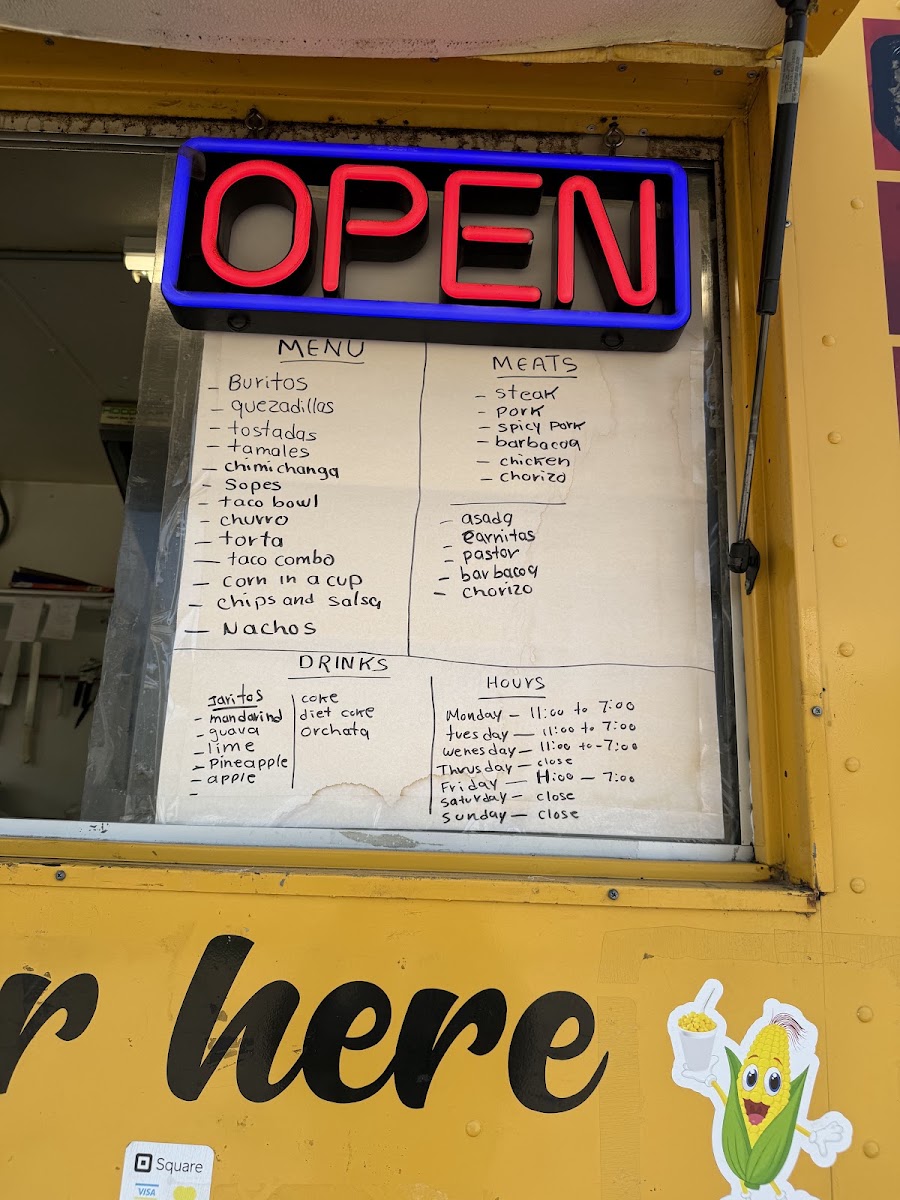 OPEN
MENU
- Buritos
- quezadillas
- tostadas
- tamales
- chimichanga
- Sopes
- taco bowl
- churro
- torta
- taco combo
- corn in a cup
- chips and salsa
- Nachos
MEATS
- steak
- pork
- spicy pork
- barbacoa
- chicken
- chorizo
- asada
- carnitas
- pastor
- barbacoa
- chorizo
DRINKS
Jaritos
- mandarind
- guava
- lime
- Pineapple
- apple
-
coke
diet coke
orchata
HOURS
Monday - 11:00 to 7:00
tuesday - 11:00 to 7:00
wenesday - 11:00 to - 7:00
Thrusday - close
Friday - 11:00 - 7:00
saturday - close
sunday - close
r here
Square
VISA